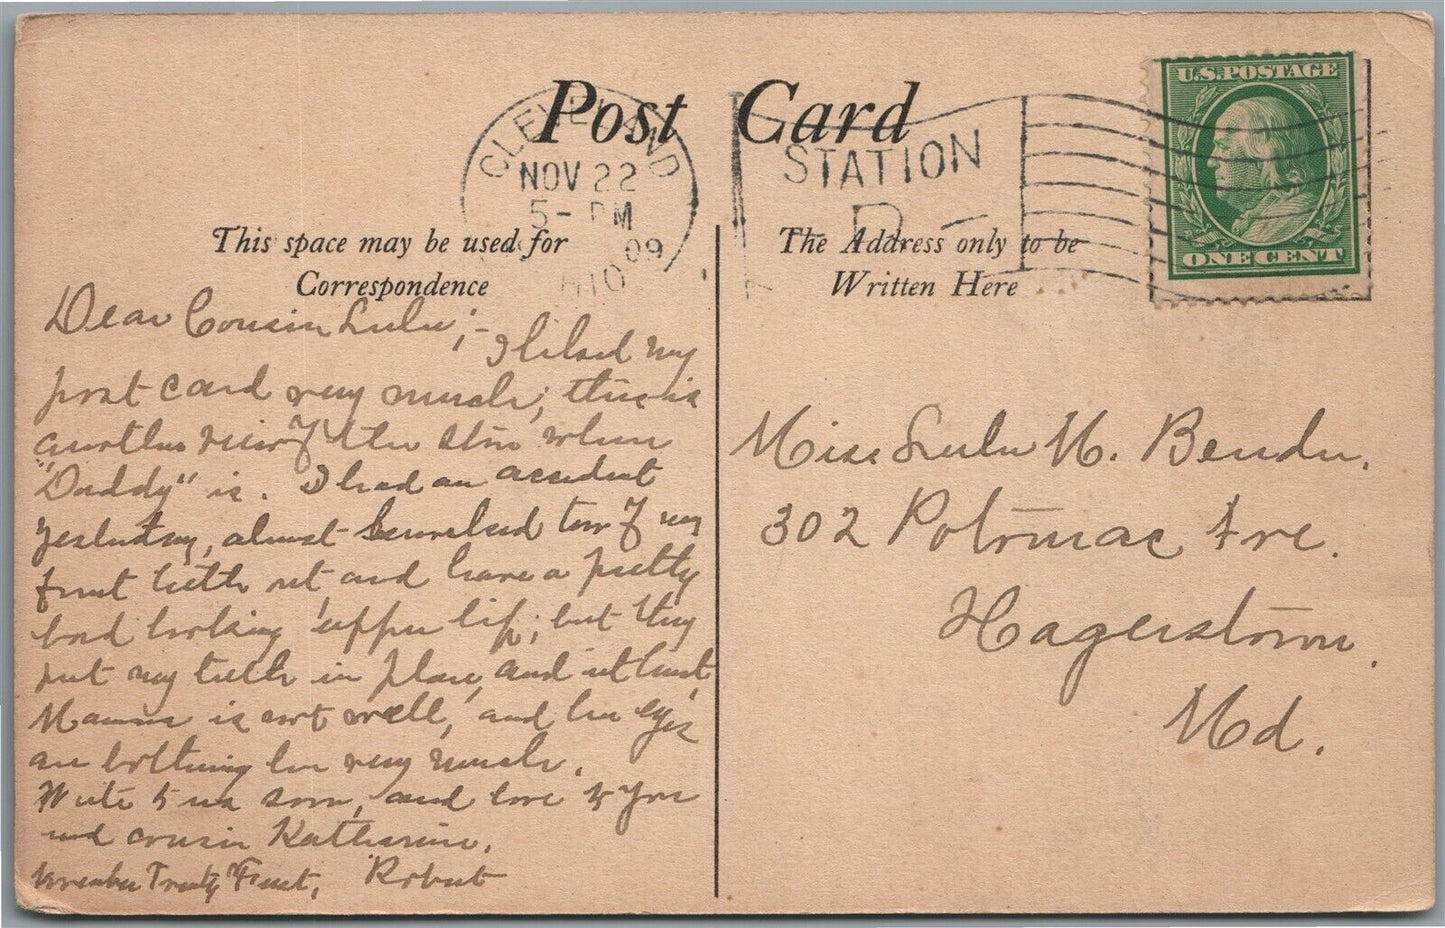 Post Card
CLEVELAND
NOV 22
5- PM
09
OHIO
STATION
D
U.S. POSTAGE
ONE CENT
This space may be used for
Correspondence
The Address only to be
Written Here
Dear Cousin Lulu;-
I liked my
post card very much; this is
another view of the store where
"Daddy" is. I had an accident
yesterday, almost knocked two of my
front teeth out and have a pretty
bad looking upper lip; but they
put my teeth in place, and
Mamma is not well, and her eyes
are bothering her very much.
Write to us soon, and love to you
and cousin Katharine.
November Twenty First, Robert
Miss Lulu M. Bender.
302 Potomac Ave.
Hagerstown.
Md.